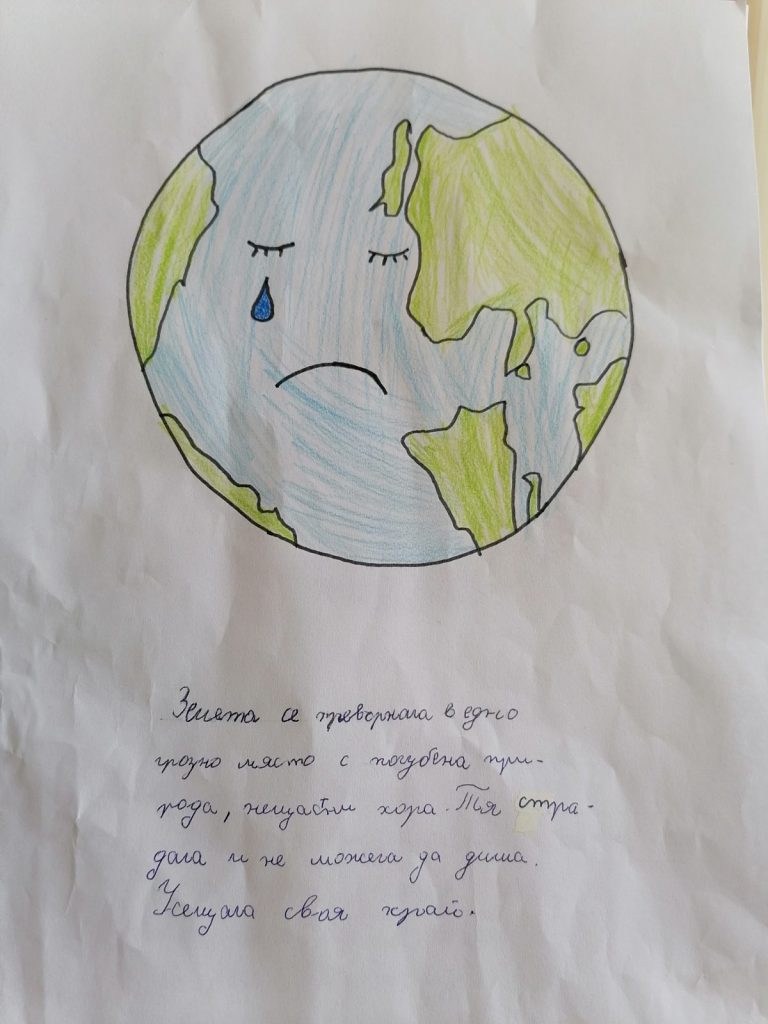 Земята се превърнала в едно
грозно място с погубена при-
рода, нещастни хора. Тя стра-
дала и не можела да диша.
Усещала своя край.